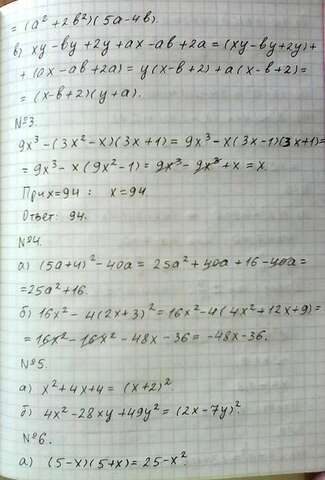 = (a² + 2b²)(5a-4b).
в) xy - by + 2y + ax - ab + 2a = (xy - by + 2y) +
+ (ax - ab + 2a) = y(x-b+2) + a(x-b+2) =
= (x-b+2)(y+a).
№3.
9x³ - (3x² - x)(3x+1) = 9x³ - x(3x-1)(3x+1) =
= 9x³ - x(9x² - 1) = 9x³ - 9x³ + x = x
При x=94 : x=94
Ответ: 94.
№4.
а) (5a+4)² - 40a = 25a² + 40a + 16 - 40a =
= 25a² + 16.
б) 16x² - 4(2x+3)² = 16x² - 4(4x² + 12x + 9) =
= 16x² - 16x² - 48x - 36 = -48x - 36.
№5.
а) x² + 4x + 4 = (x+2)².
б) 4x² - 28xy + 49y² = (2x - 7y)².
№6.
а) (5-x)(5+x) = 25 - x².